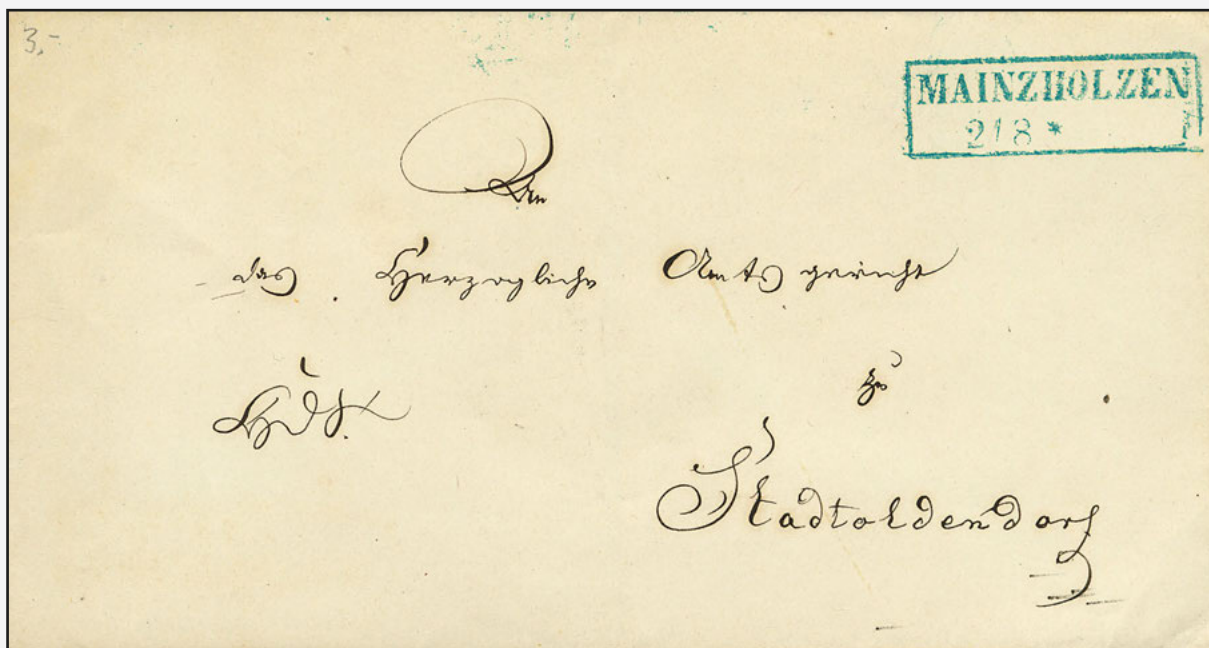 3,-
MAINZHOLZEN
2/8 *
An
das Herzogliche Amtsgericht
zu
Stadtoldendorf